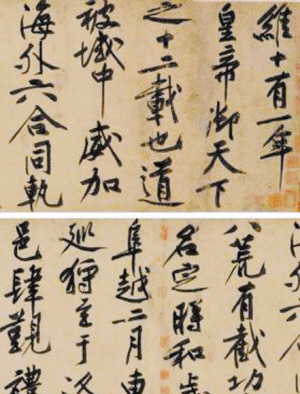 維十有一年
皇帝御天下
之十二載也道
被域中威加
海外六合同軌
海外六合
八荒有截功
名定時和歲
阜越二月東
巡狩至于洛
邑肆覲禮